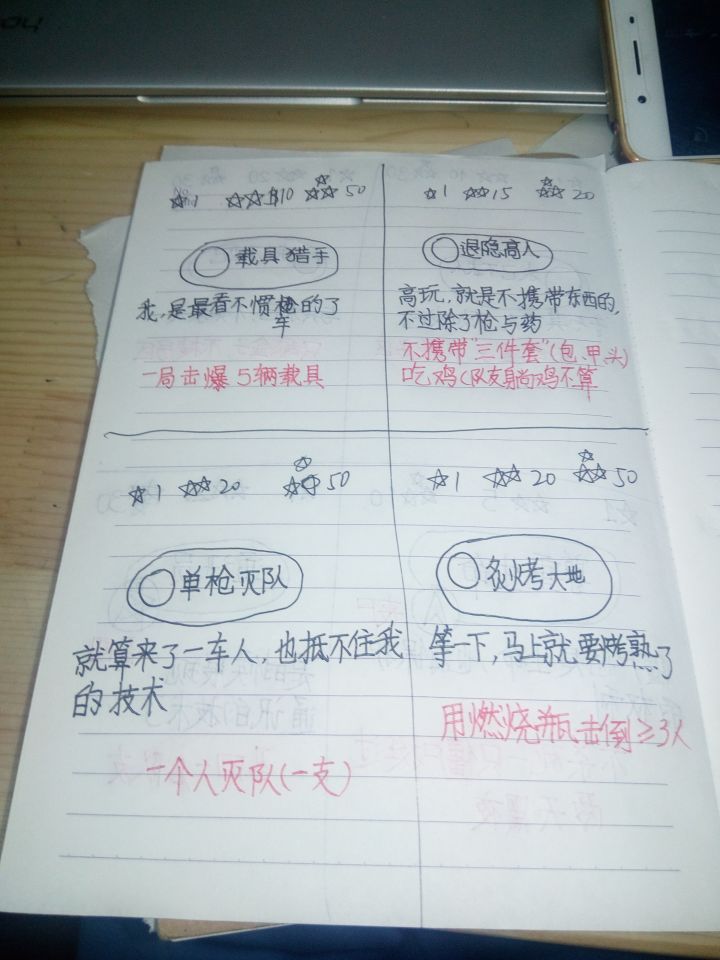 ☆1 ☆☆10 ☆☆☆50
载具猎手
我,是最看不惯的了
车
一局击爆5辆载具
☆1 ☆☆15 ☆☆☆20
退隐高人
高玩,就是不携带东西的,
不过除了枪与药
不携带"三件套"(包、甲、头)
吃鸡(队友躺鸡不算
☆1 ☆☆20 ☆☆☆50
单枪灭队
就算来了一车人,也抵不住我
的技术
一个人灭队(一支)
☆1 ☆☆20 ☆☆☆50
炙烤大地
等一下,马上就要烤熟了
用燃烧瓶击倒≥3人